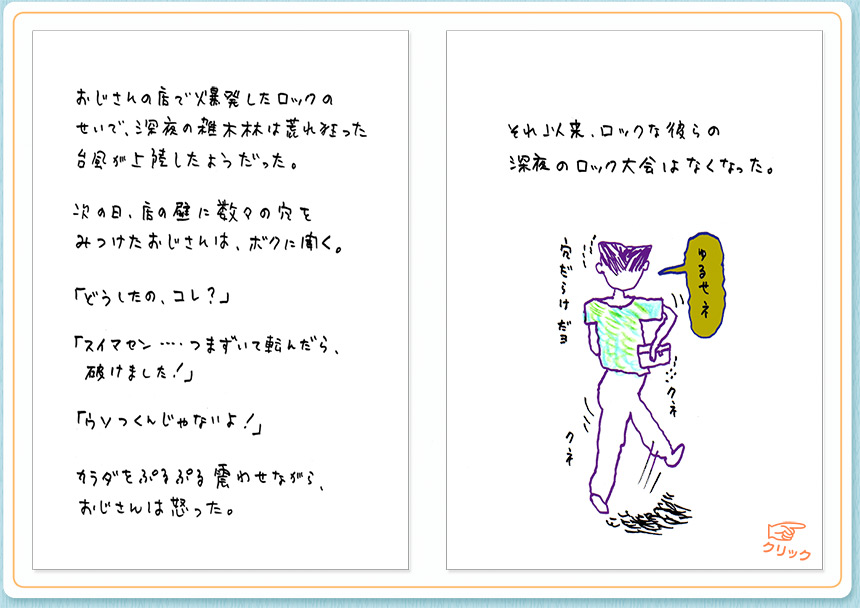 おじさんの店で爆発したロックの
せいで、深夜の雑木林は荒れ狂った
台風が上陸したようだった。
次の日、店の壁に数々の穴を
みつけたおじさんは、ボクに聞く。
「どうしたの、コレ？」
「スイマセン・・・・つまずいて転んだら、
破けました！」
「ウソつくんじゃないよ！」
カラダをぷるぷる震わせながら、
おじさんは怒った。
それ以来、ロックな彼らの
深夜のロック大会はなくなった。
ゆるせネ
穴だらけだヨ
クネ
クネ
クリック